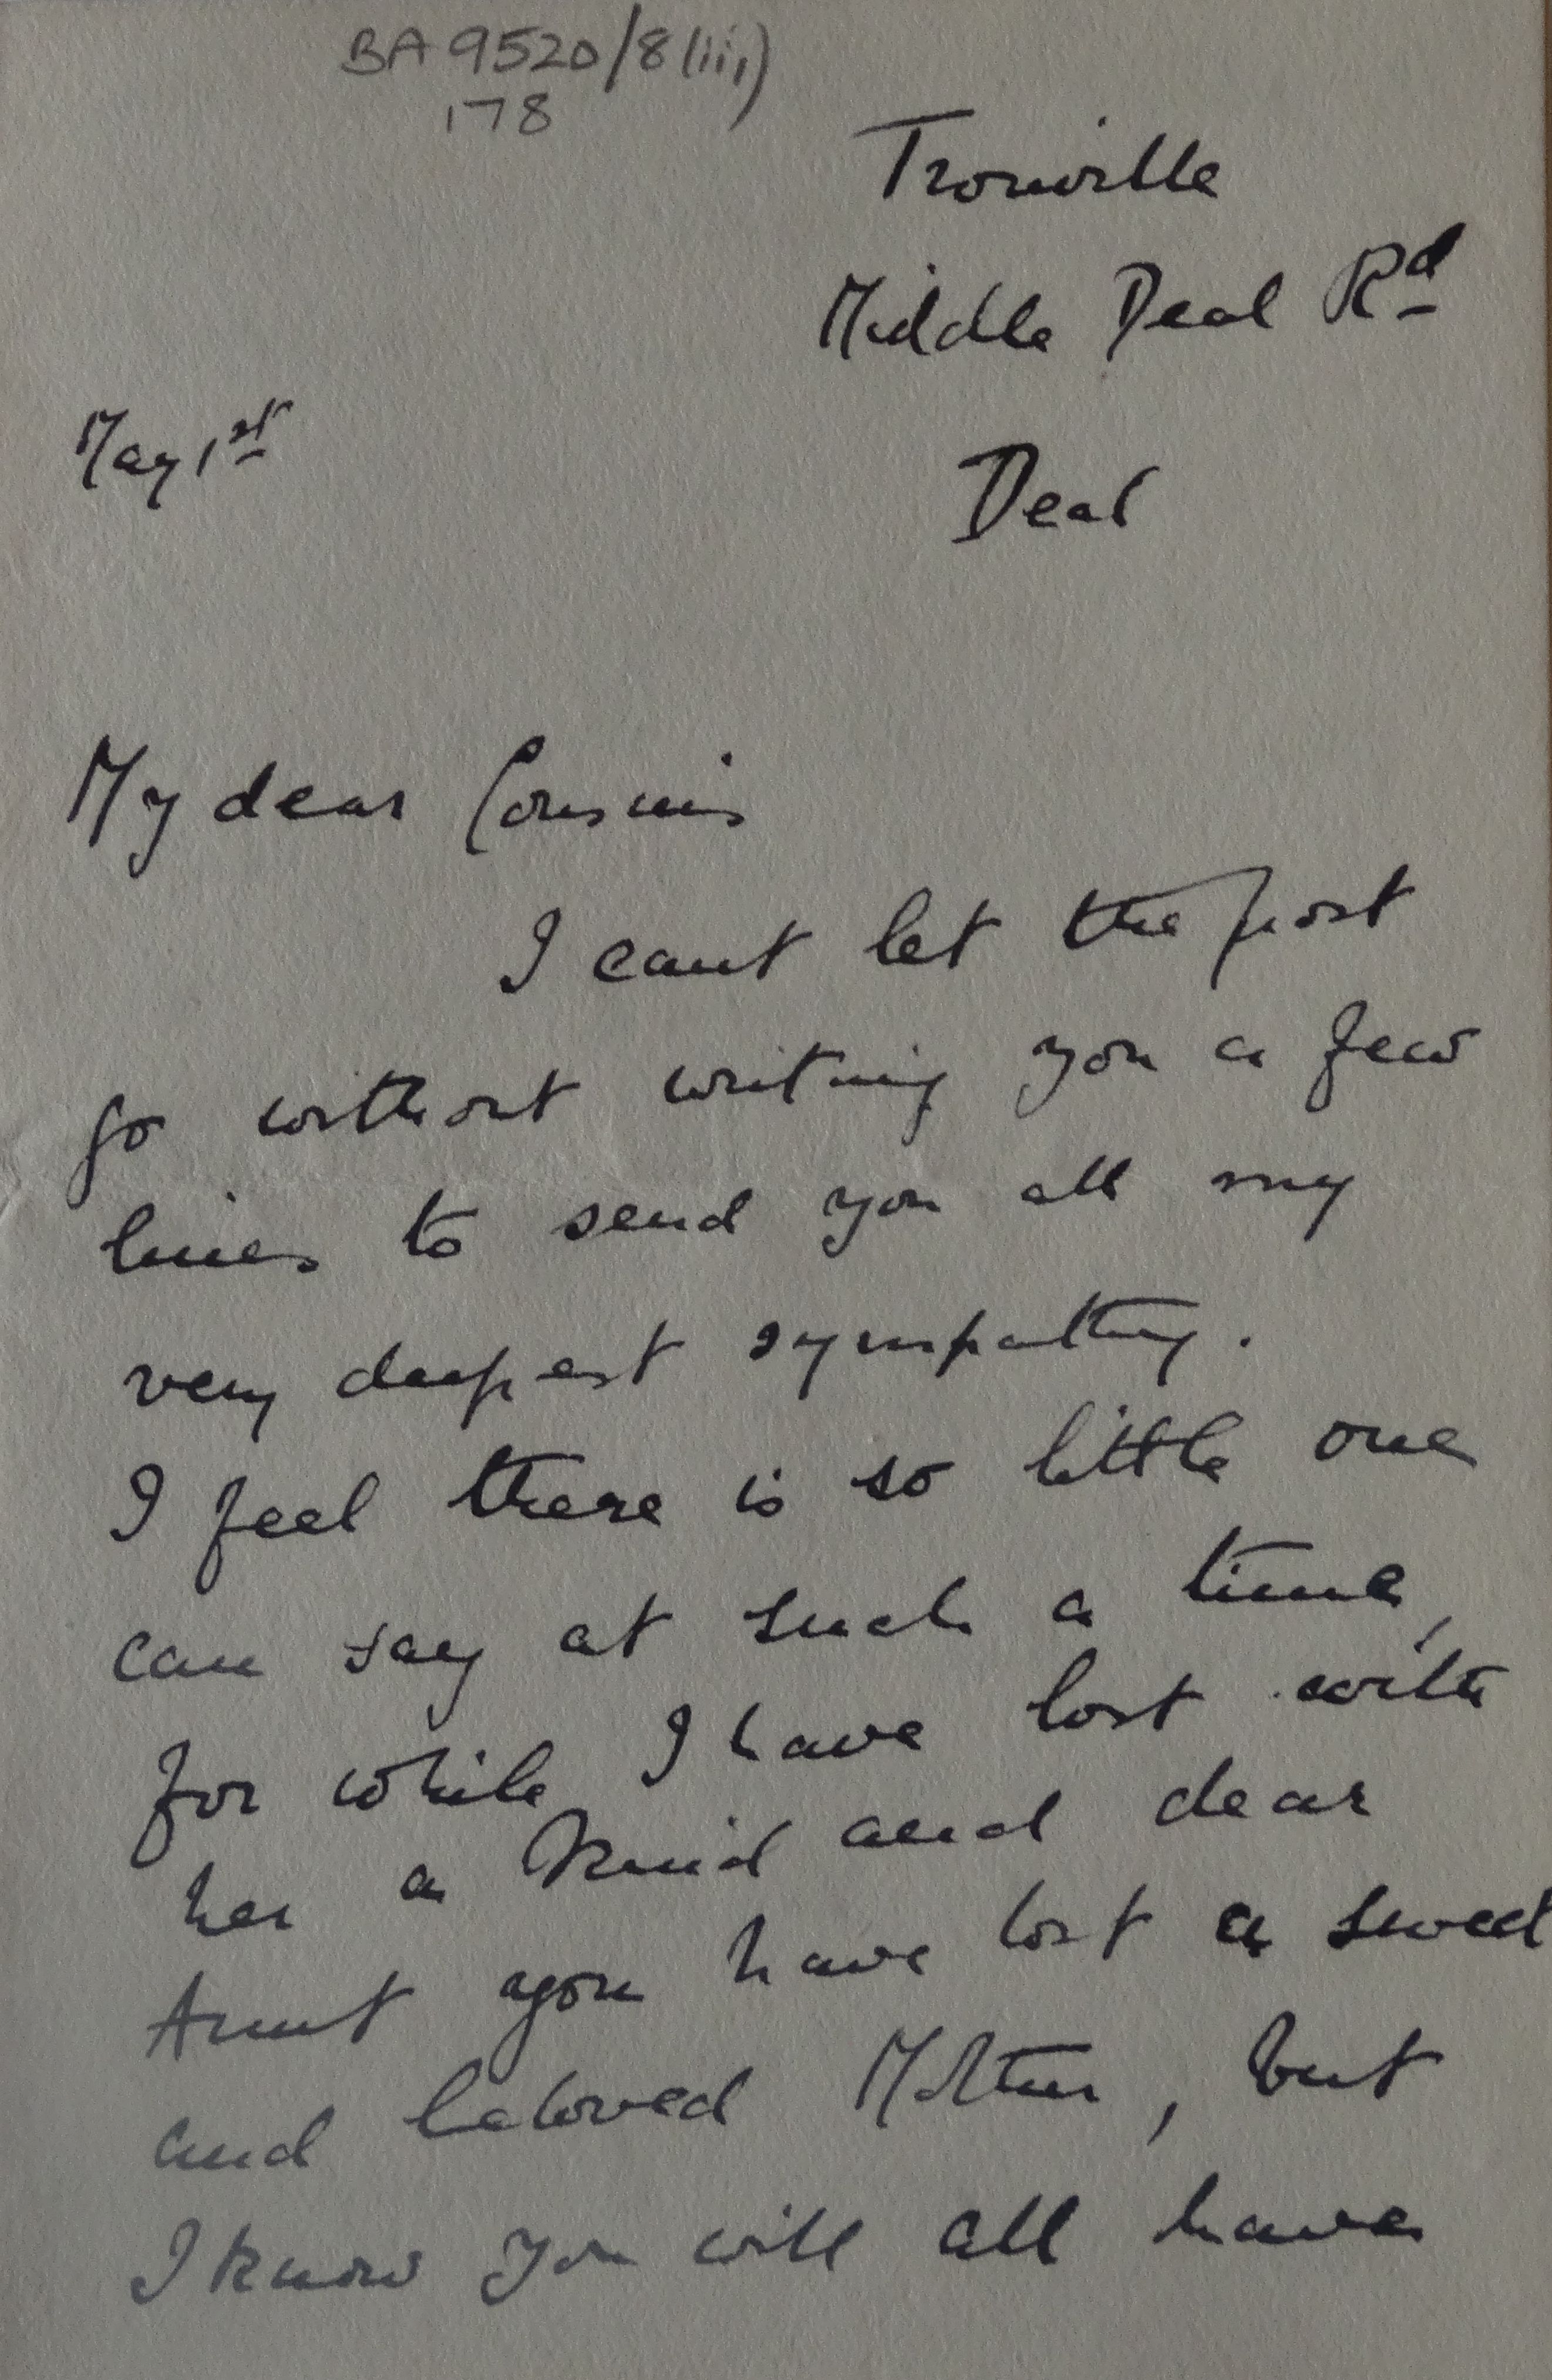 BA 9520/8(iii)
178
Trouville
Middle Deal Rd
May 1st
Deal
My dear Cousins
I cant let the post
go without writing you a few
lines to send you all my
very deepest sympathy.
I feel there is so little one
can say at such a time,
for while I have lost with
her a kind and dear
Aunt you have lost a sweet
and beloved Mother, but
I know you will all have